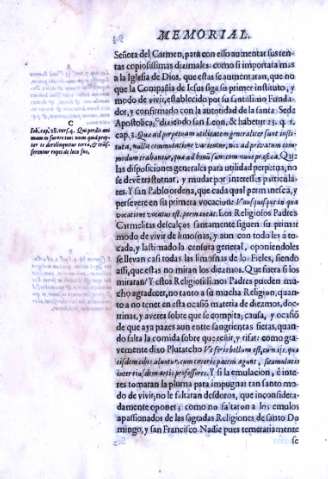 MEMORIAL.
Señora del Carmen, para con ello aumentar sus ren-
tas copiosissimas diximales: como si importara mas
a la Iglesia de Dios, que estas se aumentaran, que no
que la Compañia de Iesus siga su primer instituto, y
modo de vivir, establecido por su santissimo Funda-
dor, y confirmado con la autoridad de la santa Sede
Apostolica, diziendo san Leon, & habetur 25. q. 1.
cap. 3. Quæ ad perpetuam utilitatem generaliter sunt insti-
tuta, nulla commutatione varientur, nec ad privatum com-
modum trahantur, quæ ad bonum sunt commune præfixa. Que
las disposiciones generales para utilidad perpetua, no
se deven trastornar, y mudar por interesses particula-
res. Y san Pablo ordena, que cada qual permanesca, y
persevere en su primera vocacion: Vnusquisque in qua
vocatione vocatus est, permaneat. Los Religiosos Padres
Carmelitas descalços santamente siguen su primer
modo de vivir de limosnas, y aun con todo les à to-
cado, y lastimado la censura general, oponiendoles
se llevan casi todas las limosnas de los Fieles, siendo
assi, que estas no miran los diezmos. Que fuera si los
miraran? Y estos Religiosissimos Padres pueden mu-
cho agradecer, no tanto a su mucha Religion, quanto
a no tener en esta ocasiõ materia de diezmos, doc-
trinas, y averes sobre que se compita, causa, y ocasiõ
de que aya pazes aun entre sangrientas fieras, quan-
do falta la comida sobre que reñir, y rifar: como gra-
vemente dixo Plutarcho
inertia, eiusdem artis professores. Y si la emulacion, è inte-
res tomaran la pluma para impugnar tan santo mo-
do de vivir, no le faltaran desdoros, que inconsiderada-
mente oponer; como no faltaron a los emulos
apassionados de las sagradas Religiones de santo Do
mingo, y san Francisco. Nadie pues temerariamente
se
C
Iob, cap. 18. vers. 4. Qui perdis ani-
mam in furore tuo: num quid prop-
ter te derelinquetur terra, & trãs-
ferentur rupes de loco suo,